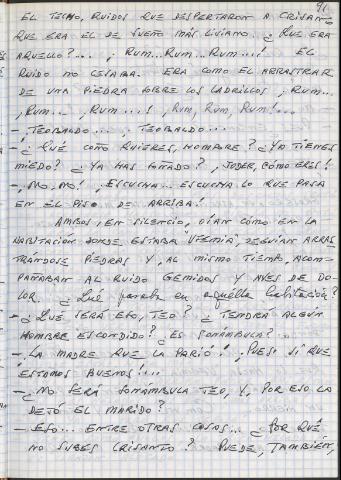 91
EL TECHO, RUIDOS QUE DESPERTARON A CRISANTO
QUE ERA EL DE SUEÑO MÁS LIVIANO... ¿QUE ERA
AQUELLO?... ¡RUM... RUM... RUM...! EL
RUIDO NO CESABA. ERA COMO EL ARRASTRAR
DE UNA PIEDRA SOBRE LOS LADRILLOS ¡RUM...
¡RUM... ¡RUM...! ¡RUM, RUM, RUM!...
- ¡TEOBALDO... ¡TEOBALDO....
- ¿QUÉ COÑO QUIERES, HOMBRE? ¿YA TIENES
MIEDO? ¿YA HAS SOÑADO? ¡JODER, CÓMO ERES!
- ¡NO, NO! ¡ESCUCHA... ESCUCHA LO QUE PASA
EN EL PISO DE ARRIBA!
AMBOS, EN SILENCIO, OÍAN CÓMO EN LA
HABITACIÓN DONDE ESTABA "UFEMIA", SEGUÍAN ARRAS
TRÁNDOSE PIEDRAS Y, AL MISMO TIEMPO, ACOM-
PAÑABAN AL RUIDO GEMIDOS Y AYES DE DO-
LOR. ¿Qué pasaba en aquella habitación?
- ¿QUÉ SERÁ ESO, TEO? ¿TENDRÁ ALGÚN
HOMBRE ESCONDIDO? ¿ES SONÁMBULA?..
- ¡LA MADRE QUE LA PARIÓ! ¡PUES SÍ QUE
ESTAMOS BUENOS!...
- ¿NO SERÁ SONÁMBULA TEO, Y, POR ESO LA
DEJÓ EL MARIDO?
- ESO... ENTRE OTRAS COSAS... ¿POR QUÉ
NO SUBES CRISANTO? PUEDE, TAMBIÉN,